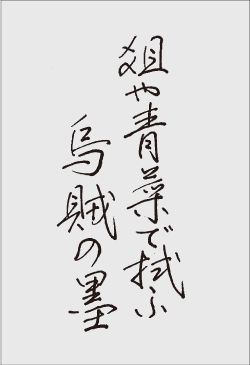 爼や青菜で拭ふ
烏賊の墨